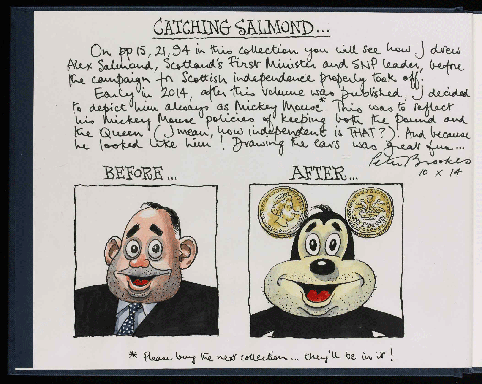 CATCHING SALMOND...
On pp 15, 21, 94 in this collection you will see how I drew
Alex Salmond, Scotland's First Minister and SNP leader, before
the campaign for Scottish independence properly took off.
Early in 2014, after this volume was published, I decided
to depict him always as Mickey Mouse*. This was to reflect
his Mickey Mouse policies of keeping both the pound and
the Queen (I mean, how independent is THAT?). And because
he looked like him! Drawing the ears was great fun...
Peter Brookes
10 x 14
BEFORE... AFTER...
* Please buy the next collection... they'll be in it!